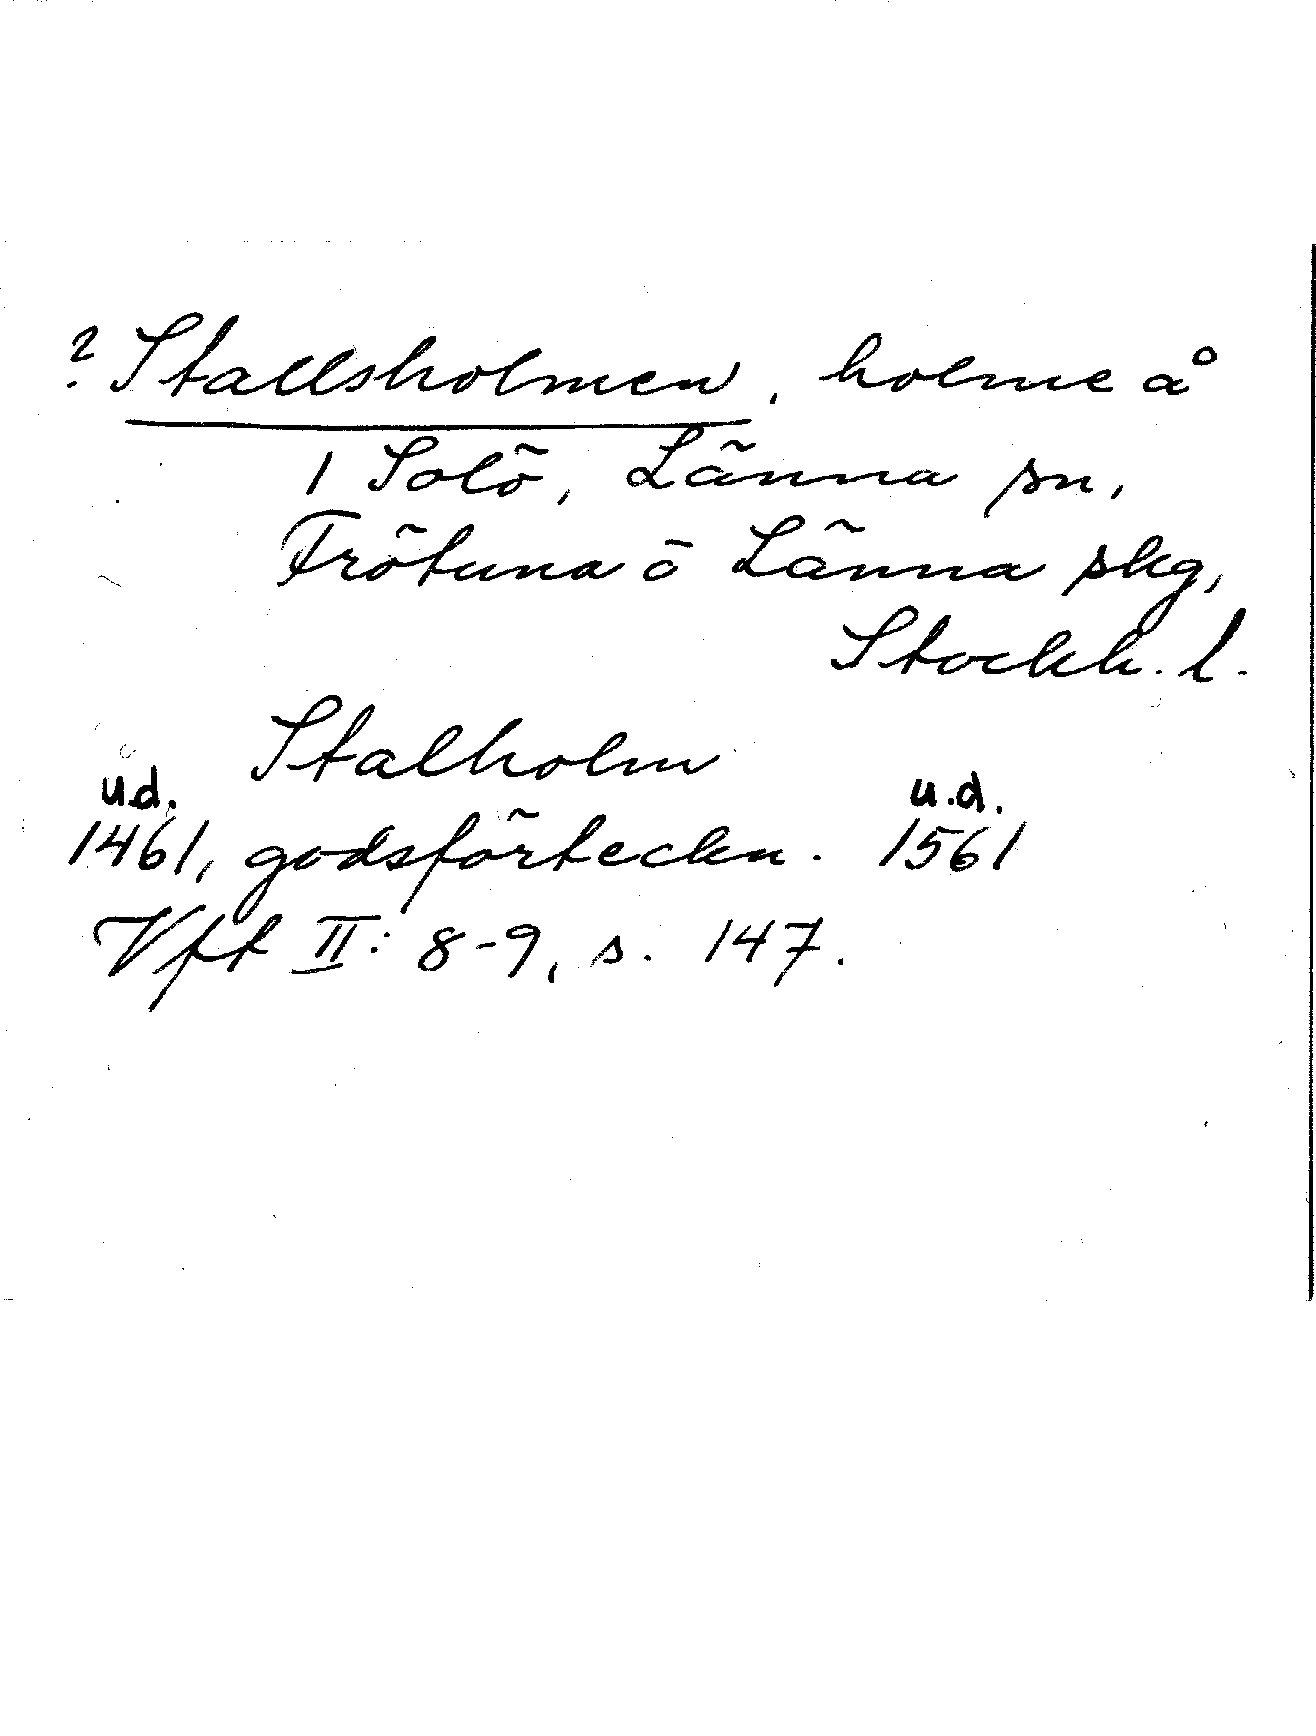 ? Stallsholmen, holme å
1 Solö, Länna sn,
Frötuna o Länna skg,
Stockh. l.
Stalholm
u.d. u.d.
1461, godsförteckn. 1561
Vft II: 8-9, s. 147.